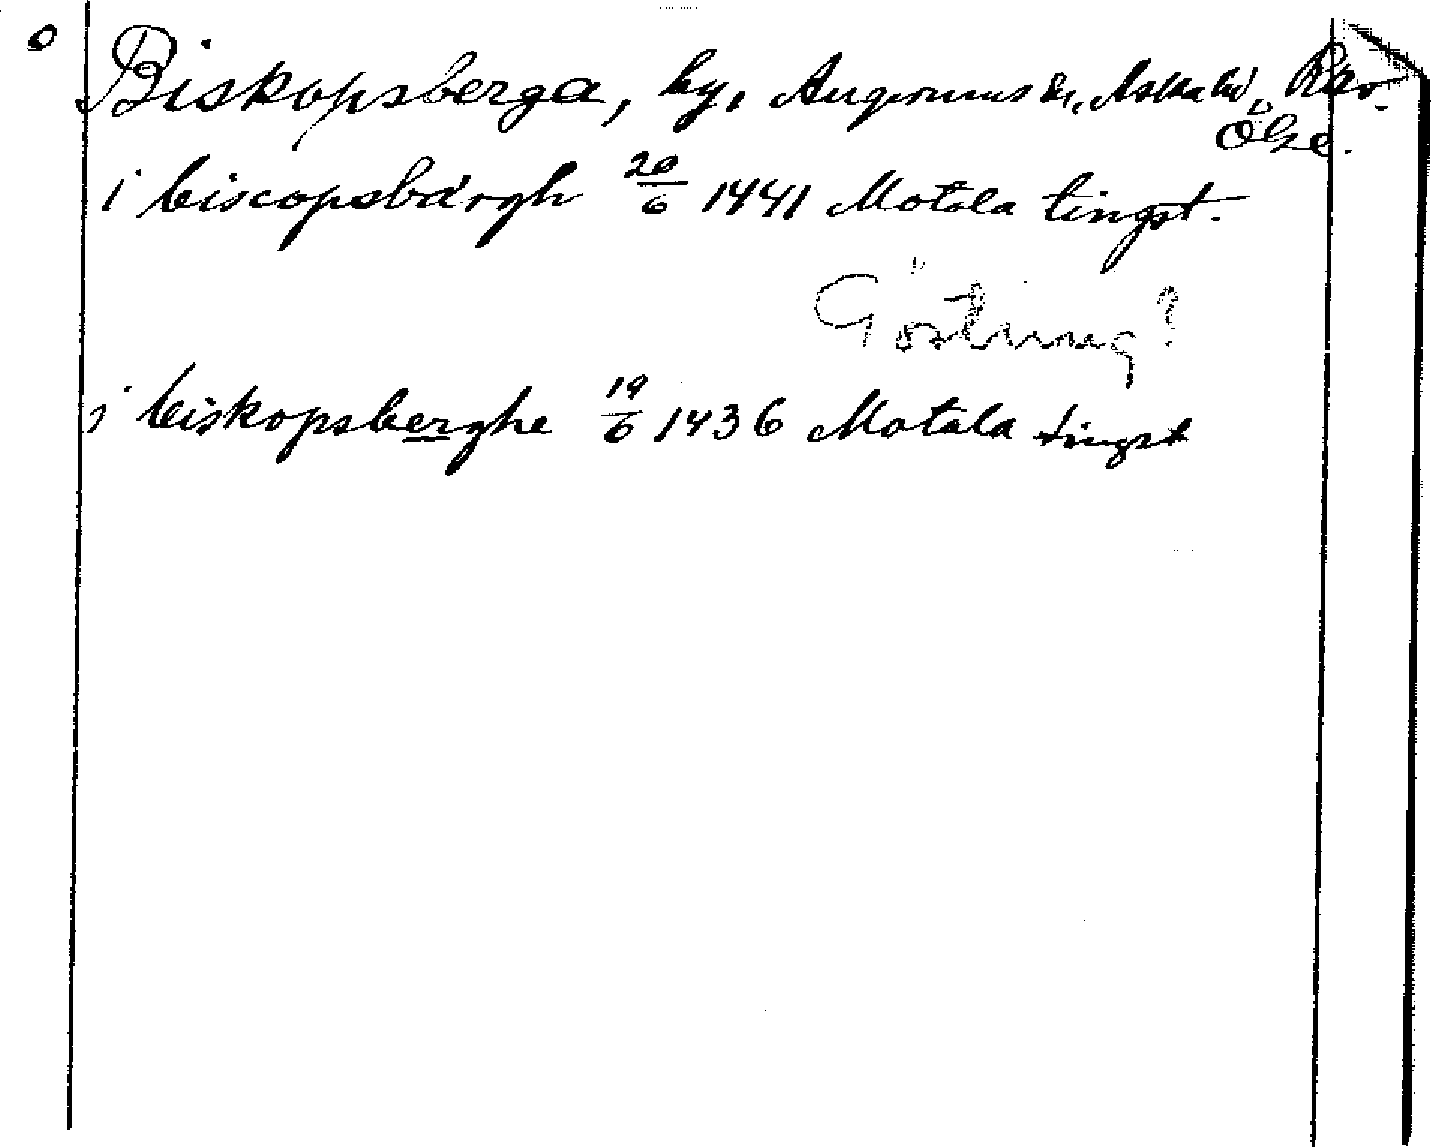 Biskopsberga, by, Aska hd,
Ög.
i biscopsbärgh 20/6 1441 Motala tingst.
Göstring?
i biskopsberghe 19/6 1436 Motala tingst